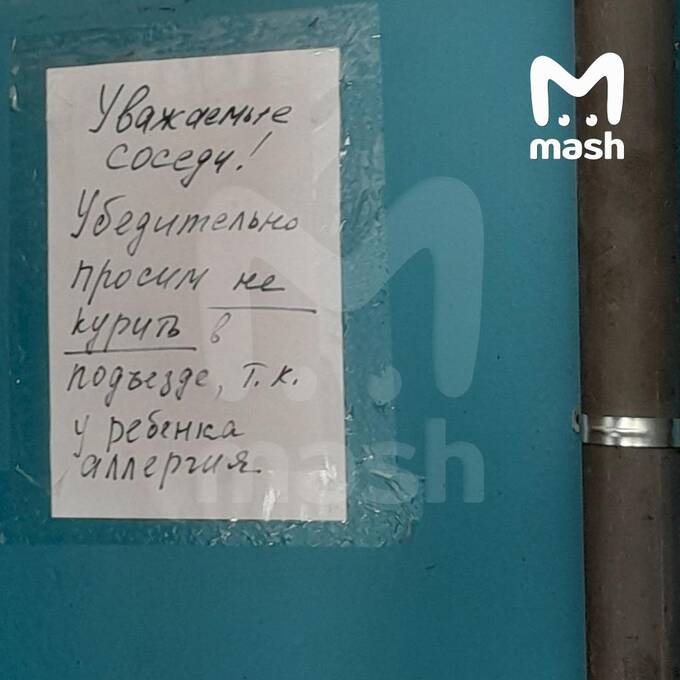 Уважаемые
соседи!
Убедительно
просим не
курить в
подъезде, т.к.
у ребенка
аллергия
mash
mash